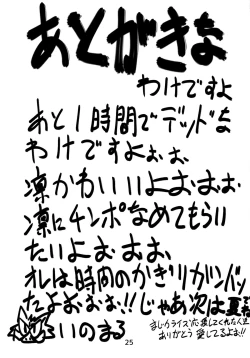 あとがきな
わけですよ
あと1時間でデッドな
わけですよぉぉ
凛かわいいよぉぉぉ
凛にチンポなめてもらい
たいよぉぉぉぉ
オレは時間のかぎりガンバッ
たよぉぉぉ!!じゃあ次は夏だ
いのまる
ありがとう 愛してるよぉ!!
25